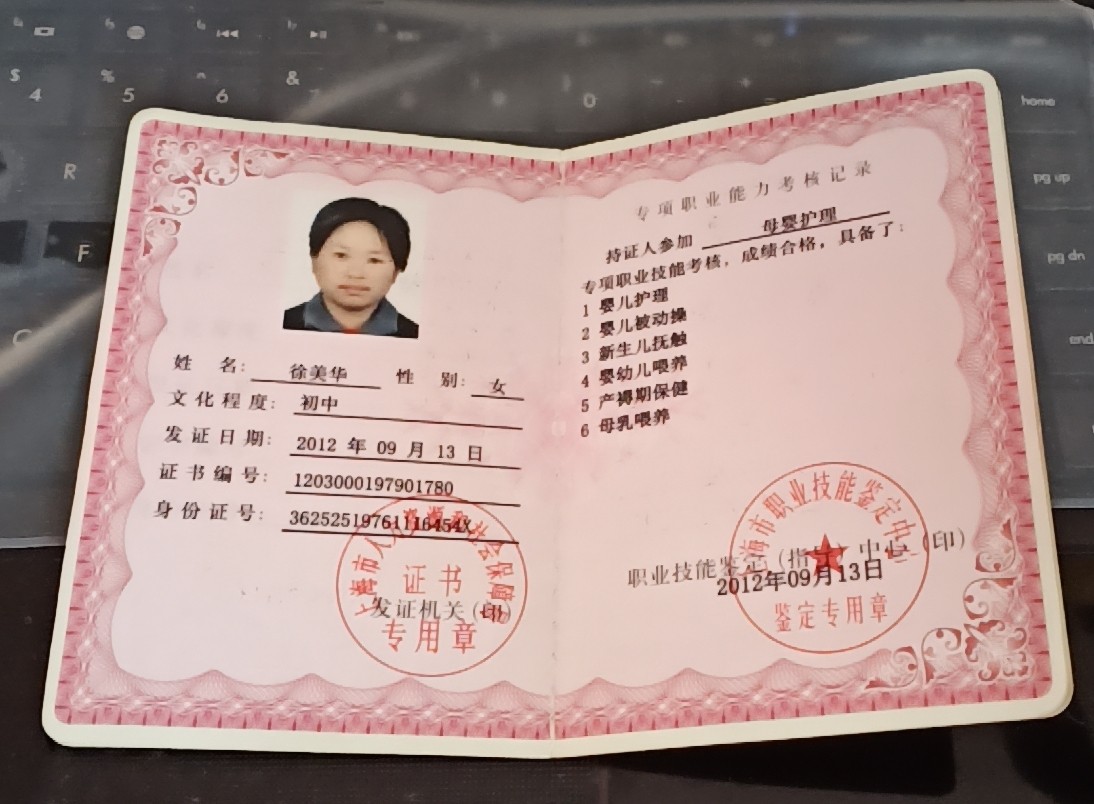 姓 名: 徐美华 性 别: 女
文化程度: 初中
发证日期: 2012 年 09 月 13 日
证书编号: 1203000197901780
身份证号: 36252519761116454X
上海市人力资源和社会保障局
证书
发证机关(印)
专用章
专项职业能力考核记录
持证人参加 母婴护理
专项职业技能考核，成绩合格，具备了:
1 婴儿护理
2 婴儿被动操
3 新生儿抚触
4 婴幼儿喂养
5 产褥期保健
6 母乳喂养
上海市职业技能鉴定中心
职业技能鉴定(指导)中心(印)
2012年09月13日
鉴定专用章
$ 4
% 5
6
& 7
0
R
F
C
home
pg up
pg dn
end